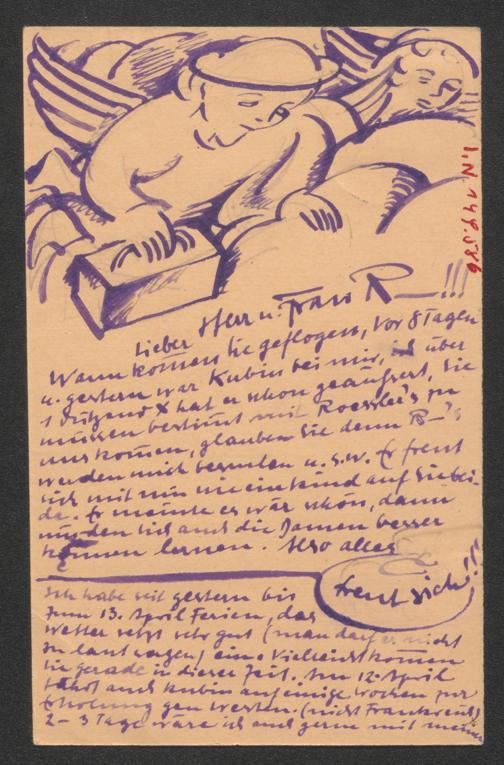 I.N. 148.586
Lieber Herr u. Frau R—!!!
Wann kom̄en Sie geflogen, Vor 8 Tagen
u. gestern war Kubin bei mir, über
1 dutzend X hat er schon geäußert, Sie
müssen bestim̄t mit Roessler's zu
uns kom̄en, glauben Sie denn R—'s
werden mich besuchen u.s.w. Er freut
sich mit nun wie ein kind auf Sie bei-
de. Er meinte es wär schön, dann
würden sich auch die Damen besser
kennen lernen. Also alles
freut sich!!!
Ich habe seit gestern bis
zum 13. April Ferien, das
Wetter setzt sehr gut (man darf es nicht
zu laut sagen) ein. Vielleicht kom̄en
Sie gerade in dieser Zeit. Am 12. April
fährt auch Kubin auf einige Wochen zur
Erholung gen Westen. (nicht Frankreich)
2–3 Tage wäre ich auch gerne mit meiner